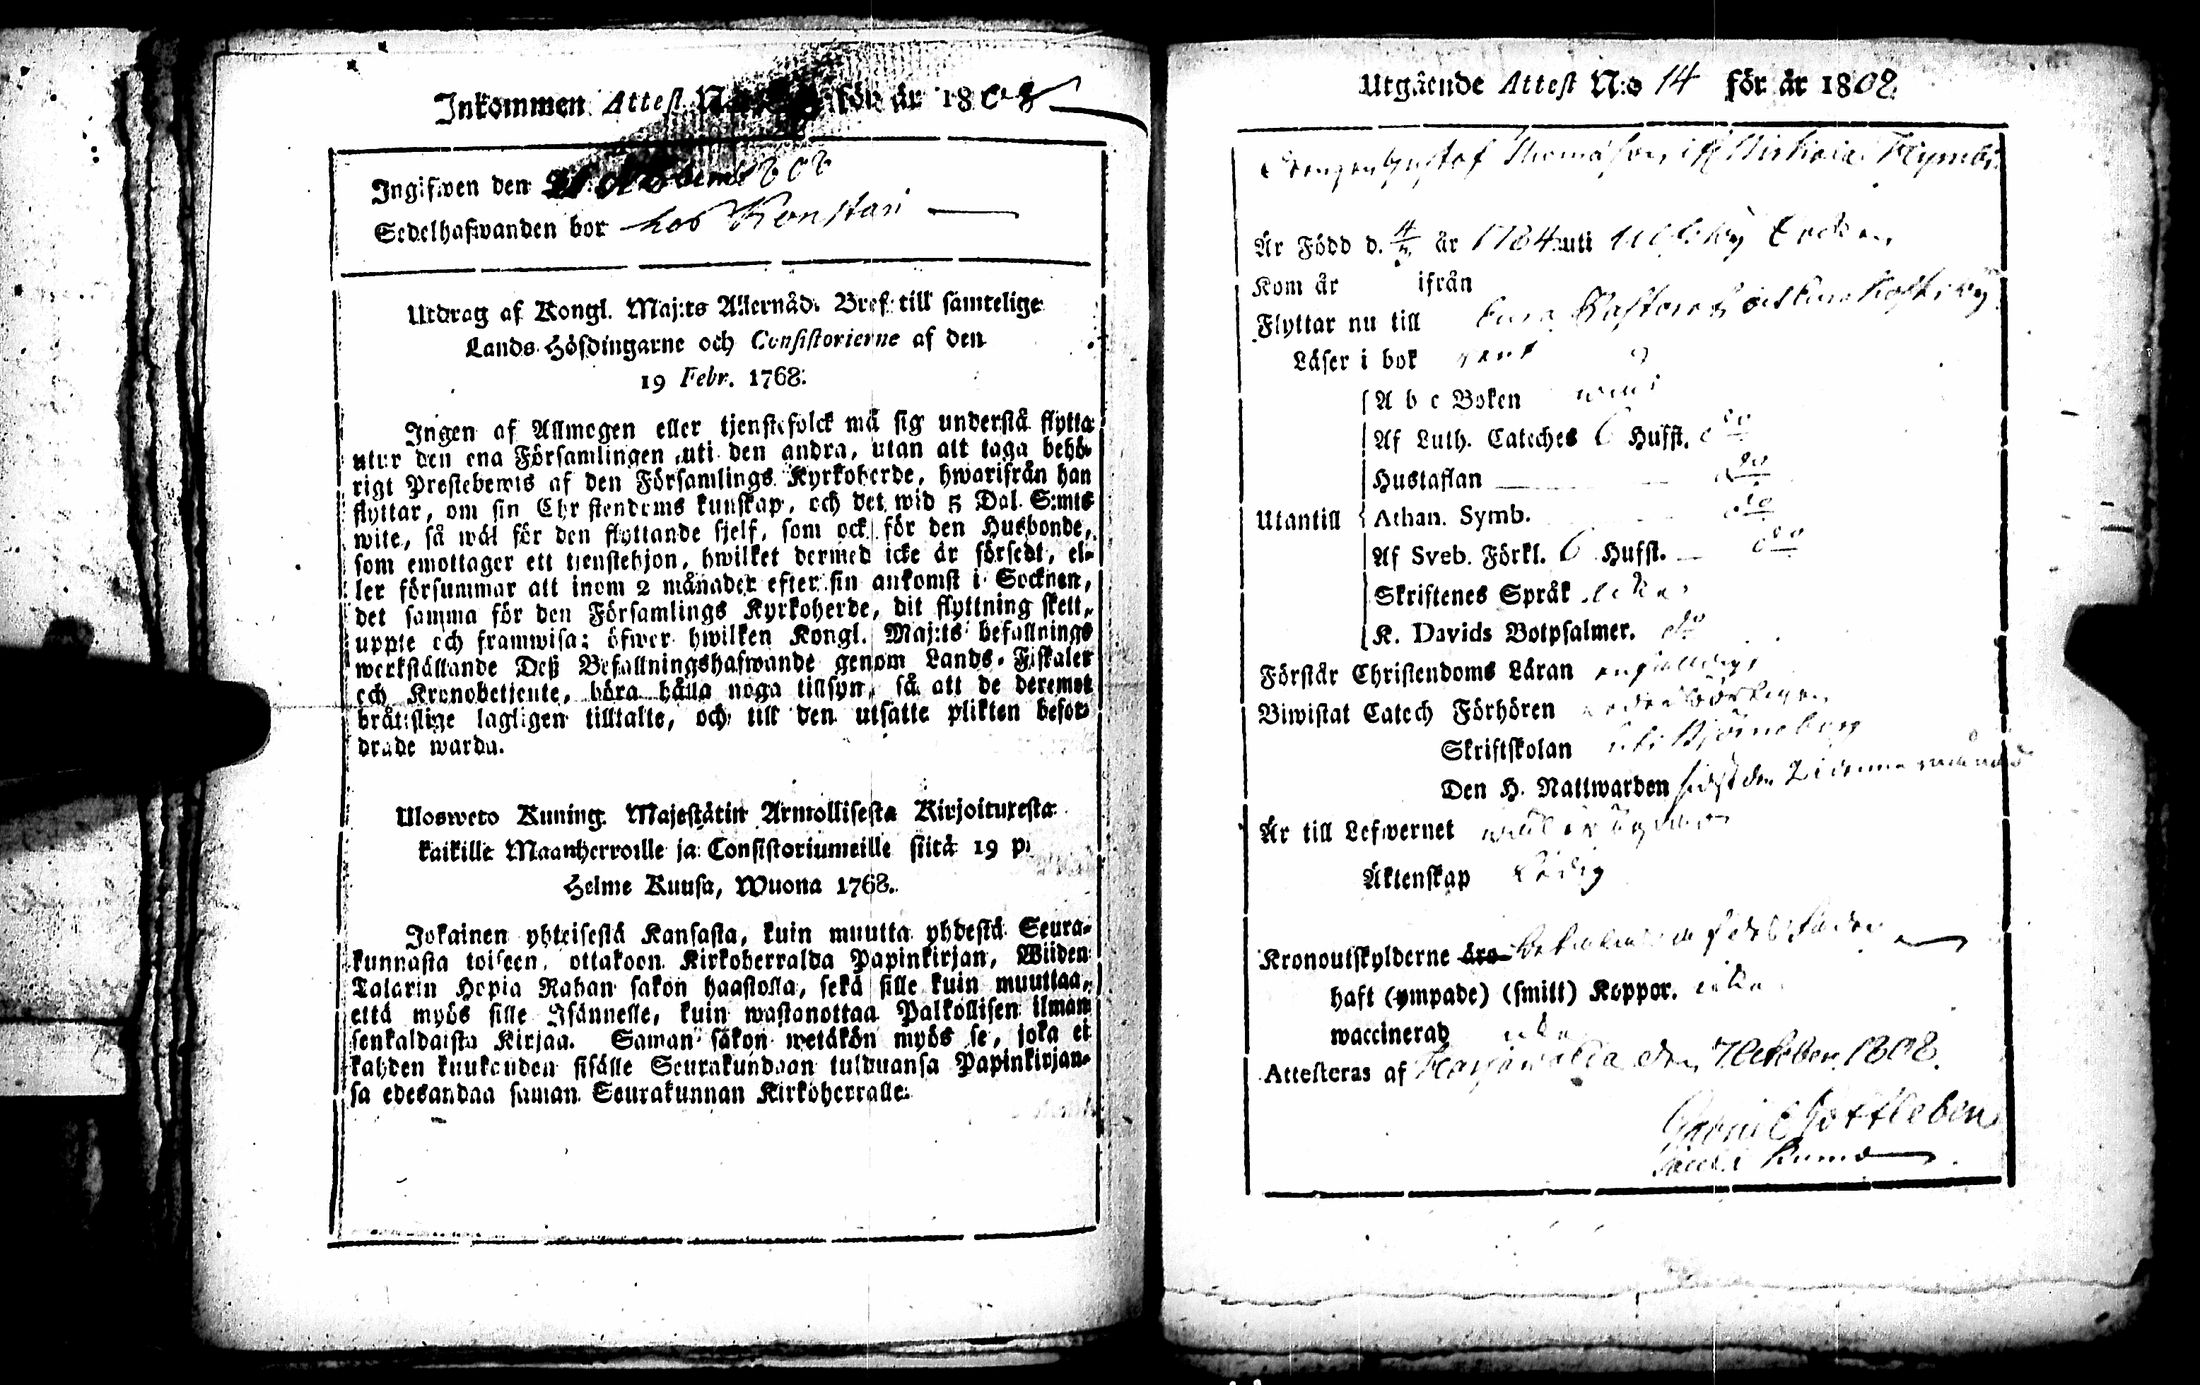 Inkommen Attest N:o för år 1808
Ingifwen den 1808
Sedelhafwanden bor hos Konstari
Utdrag af Kongl. Maj:ts Allernåd. Bref till samtelige
Lands-Höfdingarne och Consistorierne af den
19 Febr. 1768.
Ingen af Allmogen eller tjenstefolck må sig understå flytta
utur den ena Församlingen uti den andra, utan att taga behö-
rigt Prestebewis af den Församlings Kyrkoherde, hwarifrån han
flyttar, om sin Christendoms kunskap, och det wid 5 Dal. S:mts
wite, så wäl för den flyttande sjelf, som ock för den Husbonde,
som emottager ett tjenstehjon, hwilket dermed icke är försedt, el-
ler försummar att inom 2 månader efter sin ankomst i Socknen,
det samma för den Församlings Kyrkoherde, dit flyttning skett,
uppte och framwisa; öfwer hwilken Kongl. Maj:ts befallnings
werkställande Deß Befallningshafwande genom Lands-Fiskaler
och Kronobetjente, böra hålla noga tillsyn, så att de deremot
bråttslige lagligen tilltalte, och till den utsatte plikten befor-
drade warda.
Ulosweto Kuning. Majestätin Armollisesta Kirjoituxesta
kaikille Maanherroille ja Consistoriumeille siitä 19 p.
Helme Kuusa, Wuona 1768.
Jokainen yhteisestä Kansasta, kuin muutta yhdestä Seura-
kunnasta toiseen, ottakoon Kirkoherralda Papinkirjan, Wiiden
Talarin Hopia Rahan sakon haastolla, sekä sille kuin muuttaa,
että myös sille Isännelle, kuin wastanottaa Palkollisen ilman
senkaldaista Kirjaa. Saman sakon wetäkön myös se, joka ei
kahden kuukauden sisälle Seurakundaan tulduansa Papinkirjan-
sa edesandaa saman Seurakunnan Kirkoherralle.
Utgående Attest N:o 14 för år 1808.
Drengen Gustaf Thomasson
Är Född d. 4 år 1784 uti Ulfsby Socken
Kom år ifrån
Flyttar nu till Eura Pastorat
Läser i bok rent
A b c Boken
Af Luth. Cateches 6 Hufst. do
Hustaflan do
Utantill Athan. Symb. do
Af Sveb. Förkl. 6 Hufst. do
Skriftenes Språk icke
K. Davids Botpsalmer. do
Förstår Christendoms Läran enfaldeligt
Biwistat Catech Förhören
Skriftskolan uti Björneborg
Den H. Nattwarden sidst den 2 i denne månad
Är till Lefwernet
Äktenskap Ledig
Kronoutskylderne äro
haft (ympade) (smitt) Koppor. icke
waccinerad icke
Attesteras af Harjawalda den 7 October 1808.
Gabriel Gottleben